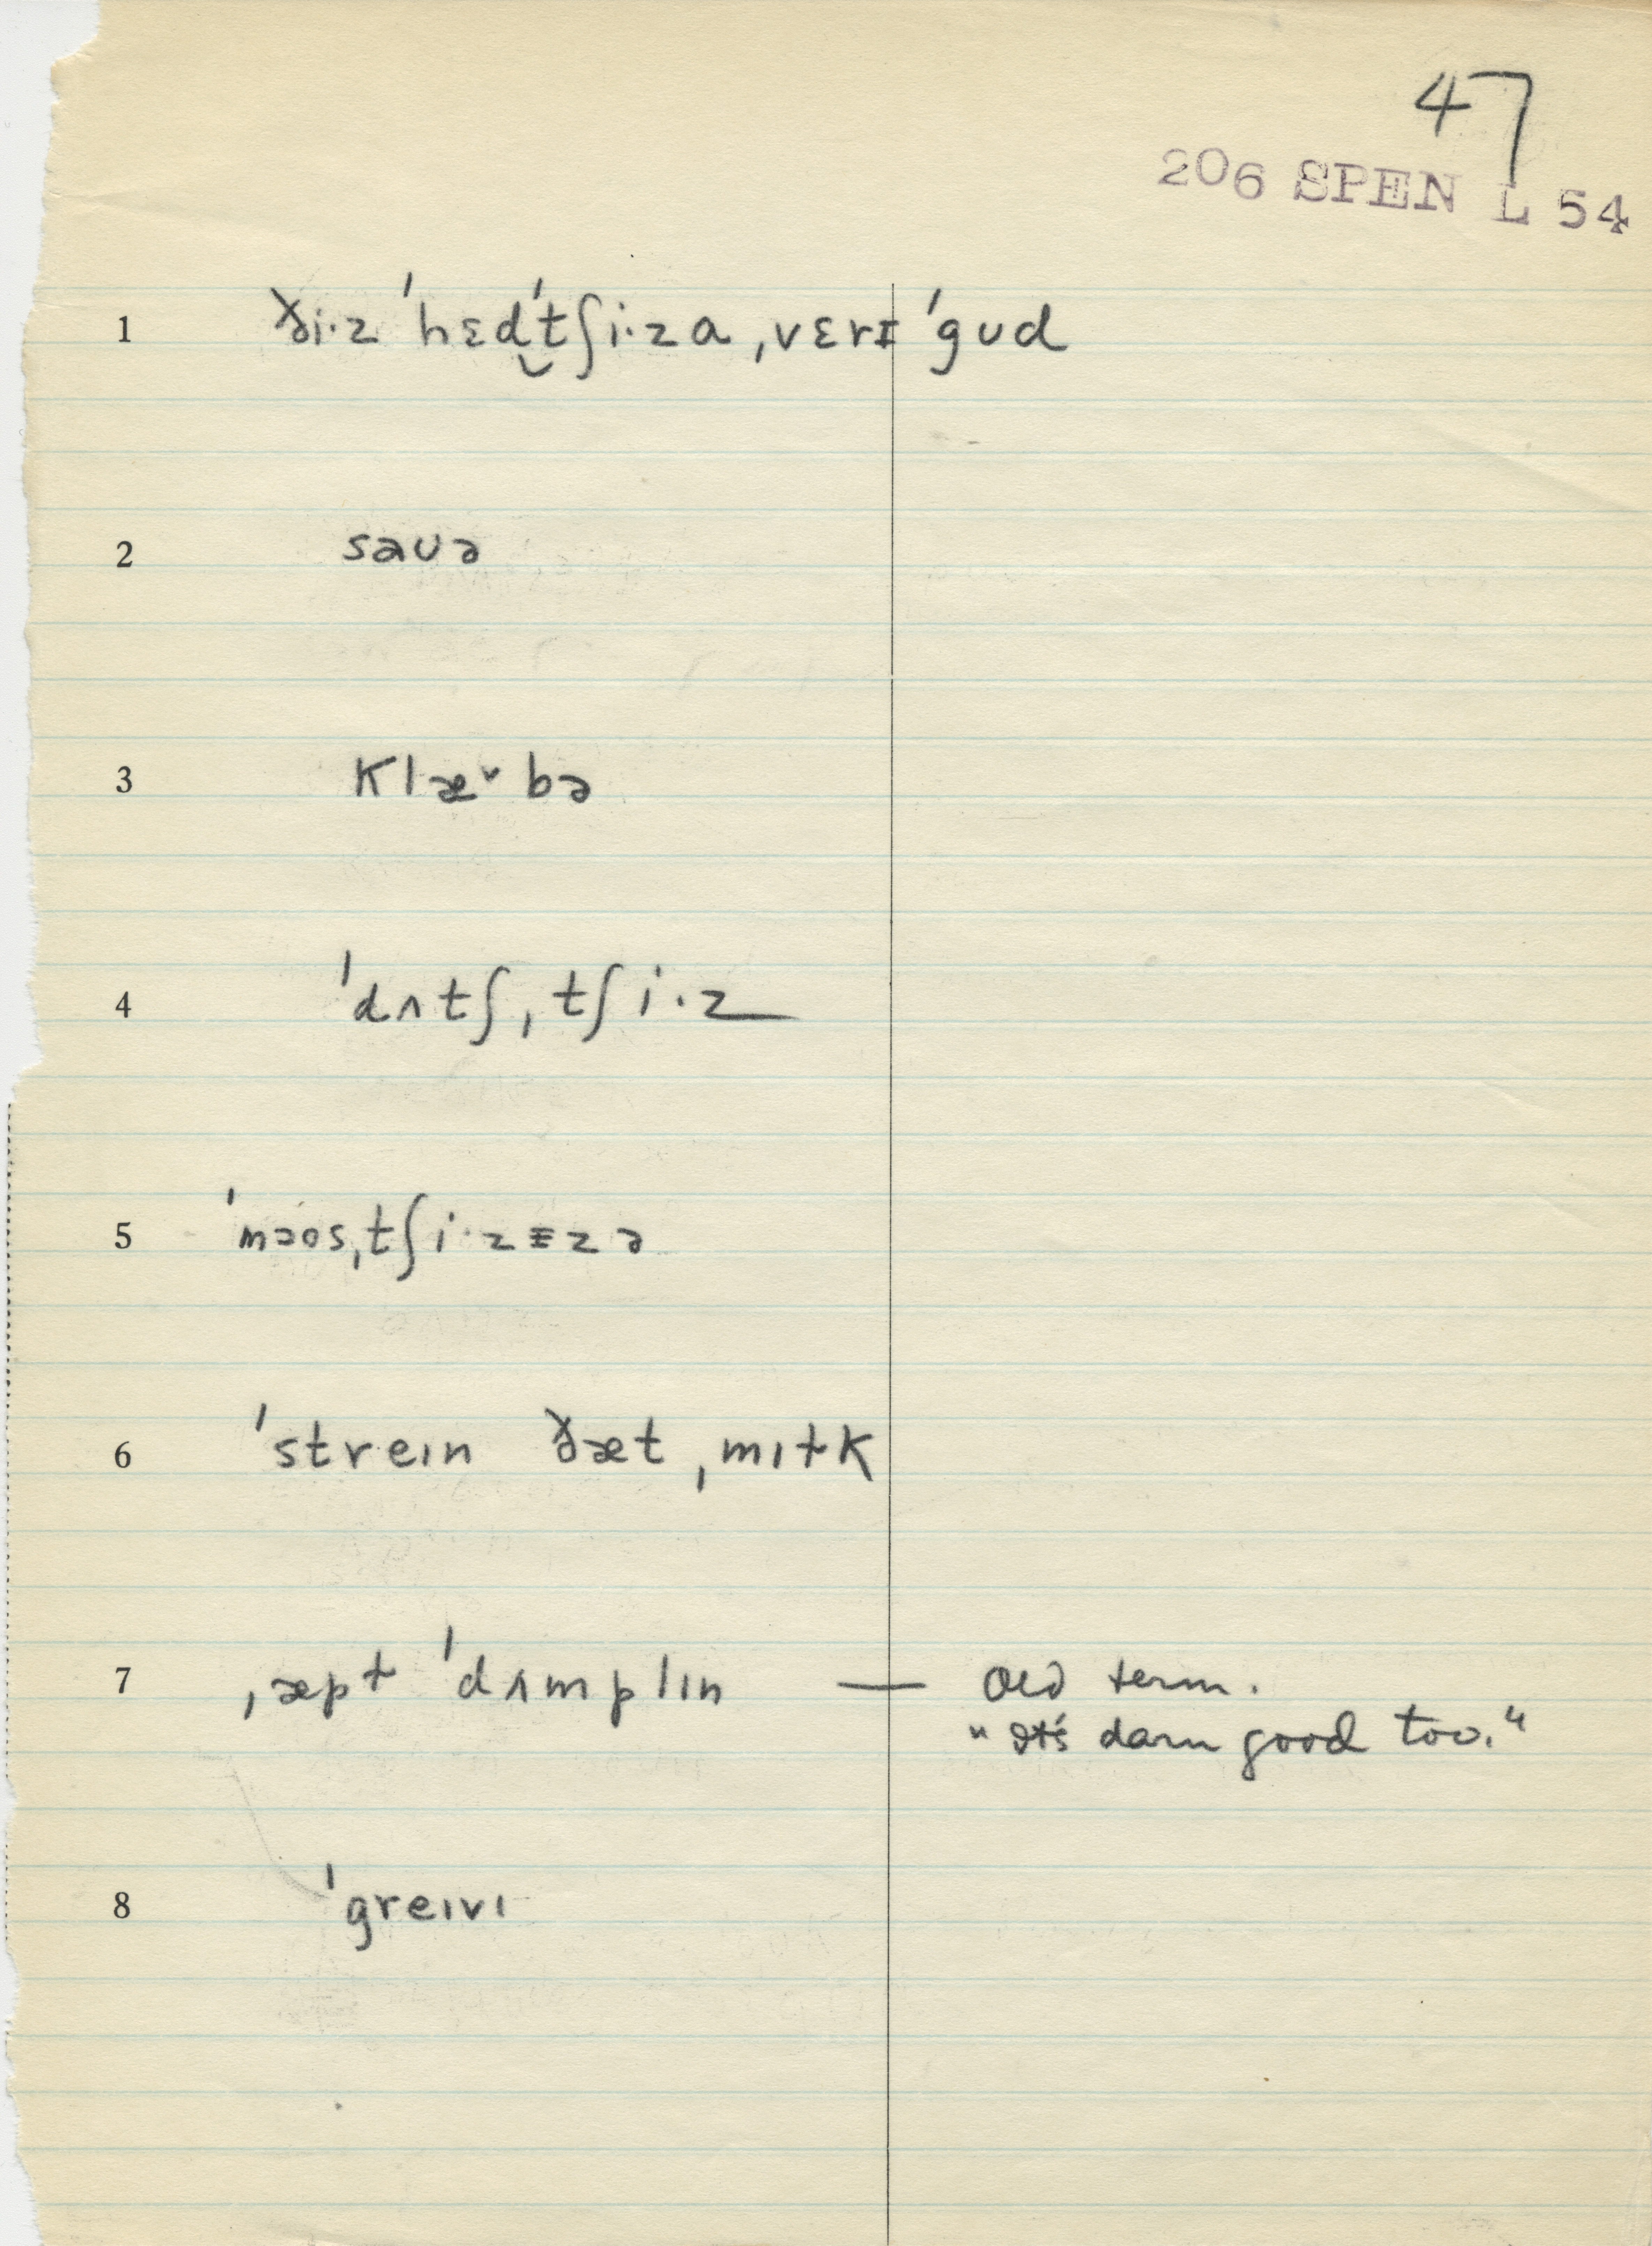 47
206 SPEN L 54
1 ði·z ˈhɛd̬ˈtʃi·za ˌvɛrɪ ˈgʊd
2 saʊə
3 klæ˅bə
4 ˈdʌtʃˌtʃi·z
5 ˈməosˌtʃi·zɪzə
6 ˈstreɪn ðæt ˌmɪɫk
7 ˌæpɫ ˈdʌmplɪn — Old term.
"It's darn good too."
8 ˈgreɪvɪ